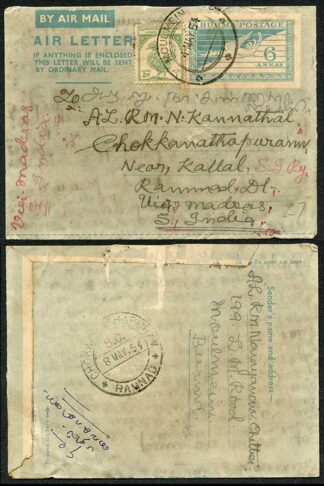 BY AIR MAIL
AIR LETTER
IF ANYTHING IS ENCLOSED
THIS LETTER WILL BE SENT
BY ORDINARY MAIL.
BURMA POSTAGE
6
ANNAS
MOULMEIN
MAY 54
To
AL. RM. N. Kannathal
Chokkanathapuram
Near, Kallal, S.I.Ry
Ramnad Dt.
Via, Madras,
S. India
Via Madras
S. India
27
To open cut here
Sender's name and address-
AL. RM. Narayanan Chettiar
199. L.M. Road
Moulmein
Burma
8 MAY. 54
RAMNAD